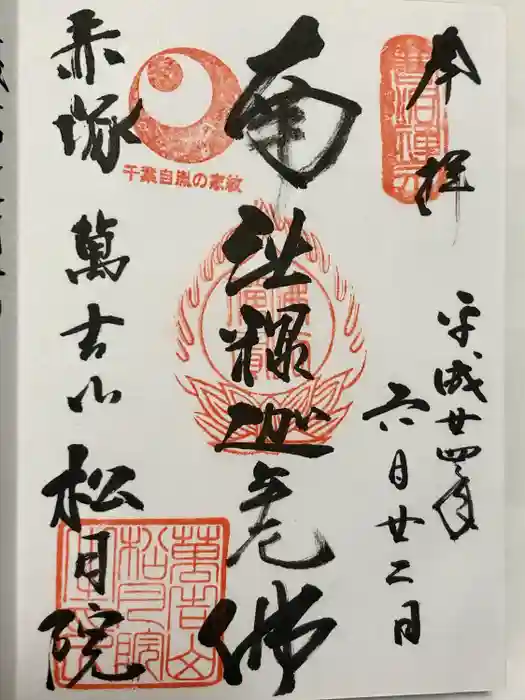 奉拝
平成廿四年
六月廿二日
南無釋迦牟尼佛
千葉自胤の家紋
赤塚
萬吉山
松月院
萬吉山
松月院